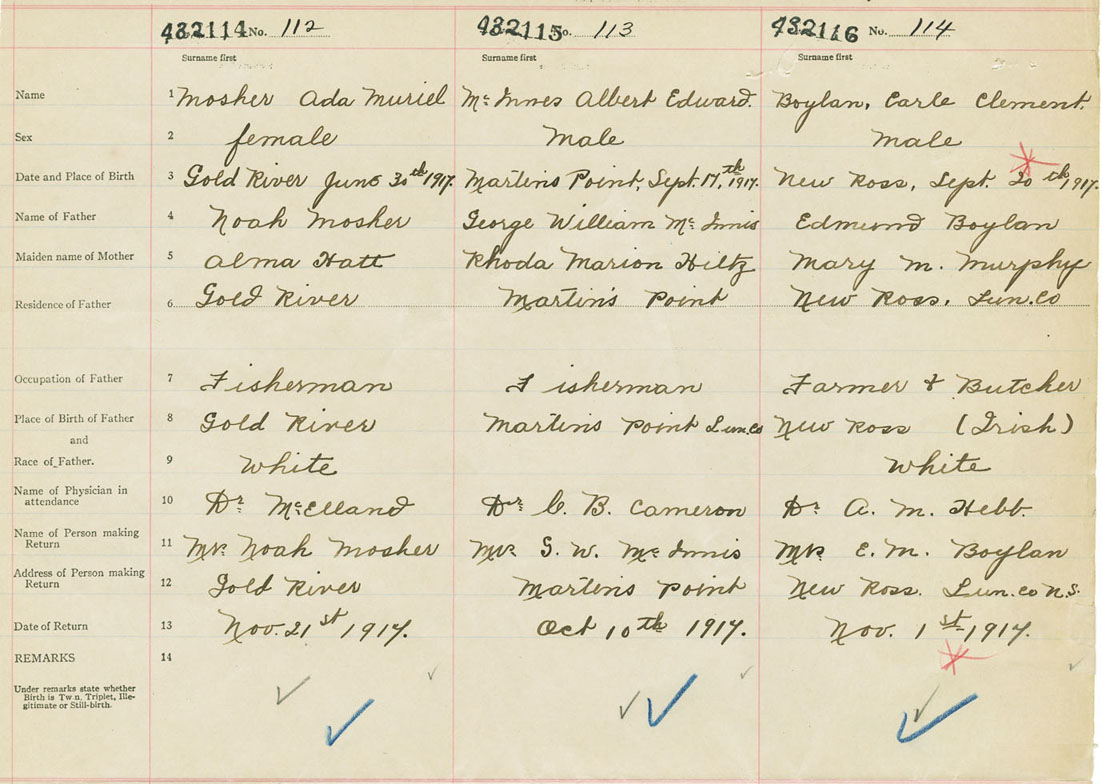 432114 No. 112 432115 No. 113 432116 No. 114
Surname first Surname first Surname first
Name 1 Mosher Ada Muriel McInnes Albert Edward. Boylan, Earle Clement.
Sex 2 female Male Male
Date and Place of Birth 3 Gold River June 30th 1917. Martins Point, Sept. 17, th 1917. New Ross, Sept. 20th 1917.
Name of Father 4 Noah Mosher George William McInnis Edmund Boylan
Maiden name of Mother 5 Alma Hatt Rhoda Marion Hiltz Mary M. Murphy
Residence of Father 6 Gold River Martin's Point New Ross, Lun. Co
Occupation of Father 7 Fisherman Fisherman Farmer & Butcher
Place of Birth of Father 8 Gold River Martins Point Lun. Co New Ross (Irish)
and
Race of Father. 9 White White
Name of Physician in
attendance 10 Dr. McElland Dr. C. B. Cameron Dr. A. M. Hebb.
Name of Person making
Return 11 Mr. Noah Mosher Mr. G. W. McInnis Mr. E. M. Boylan
Address of Person making
Return 12 Gold River Martins Point New Ross. Lun. Co N.S.
Date of Return 13 Nov. 21st 1917. Oct 10th 1917. Nov. 1st 1917.
REMARKS 14
Under remarks state whether
Birth is Twin, Triplet, Ille-
gitimate or Still-birth.